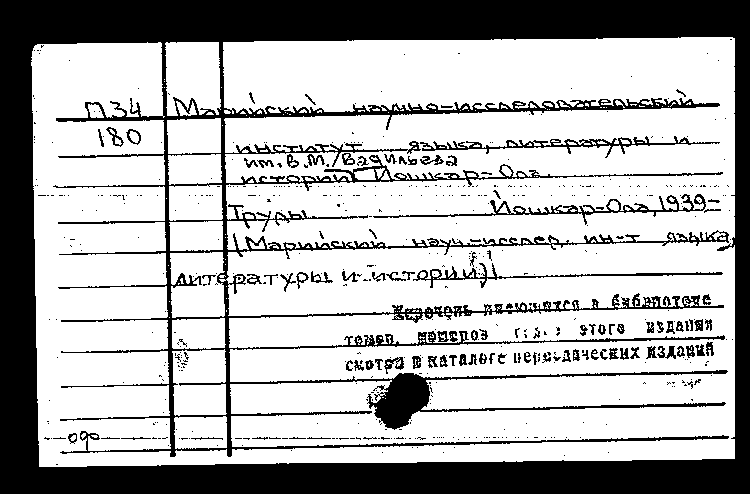 П34 Марийский научно-исследовательский
180 институт языка, литературы и
им. В.М. Васильева
истории Йошкар-Ола.
Труды. Йошкар-Ола, 1939-
(Марийский науч.-исслед. ин-т языка,
литературы и истории)
Перечень имеющихся в библиотеке
томов, номеров и т.д. этого издания
смотри в каталоге периодических изданий